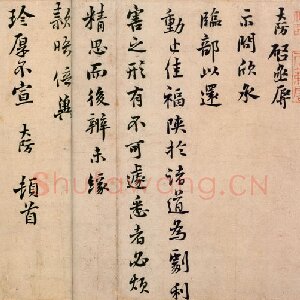 大防啓亟辱
示問欣承
臨部以還
動止佳福陝於諸道為劇利
害之形有不可遽悉者必煩
精思而後辨未緣
款晤倍冀
珍厚不宣 大防 頓首
ShufaWang.CN